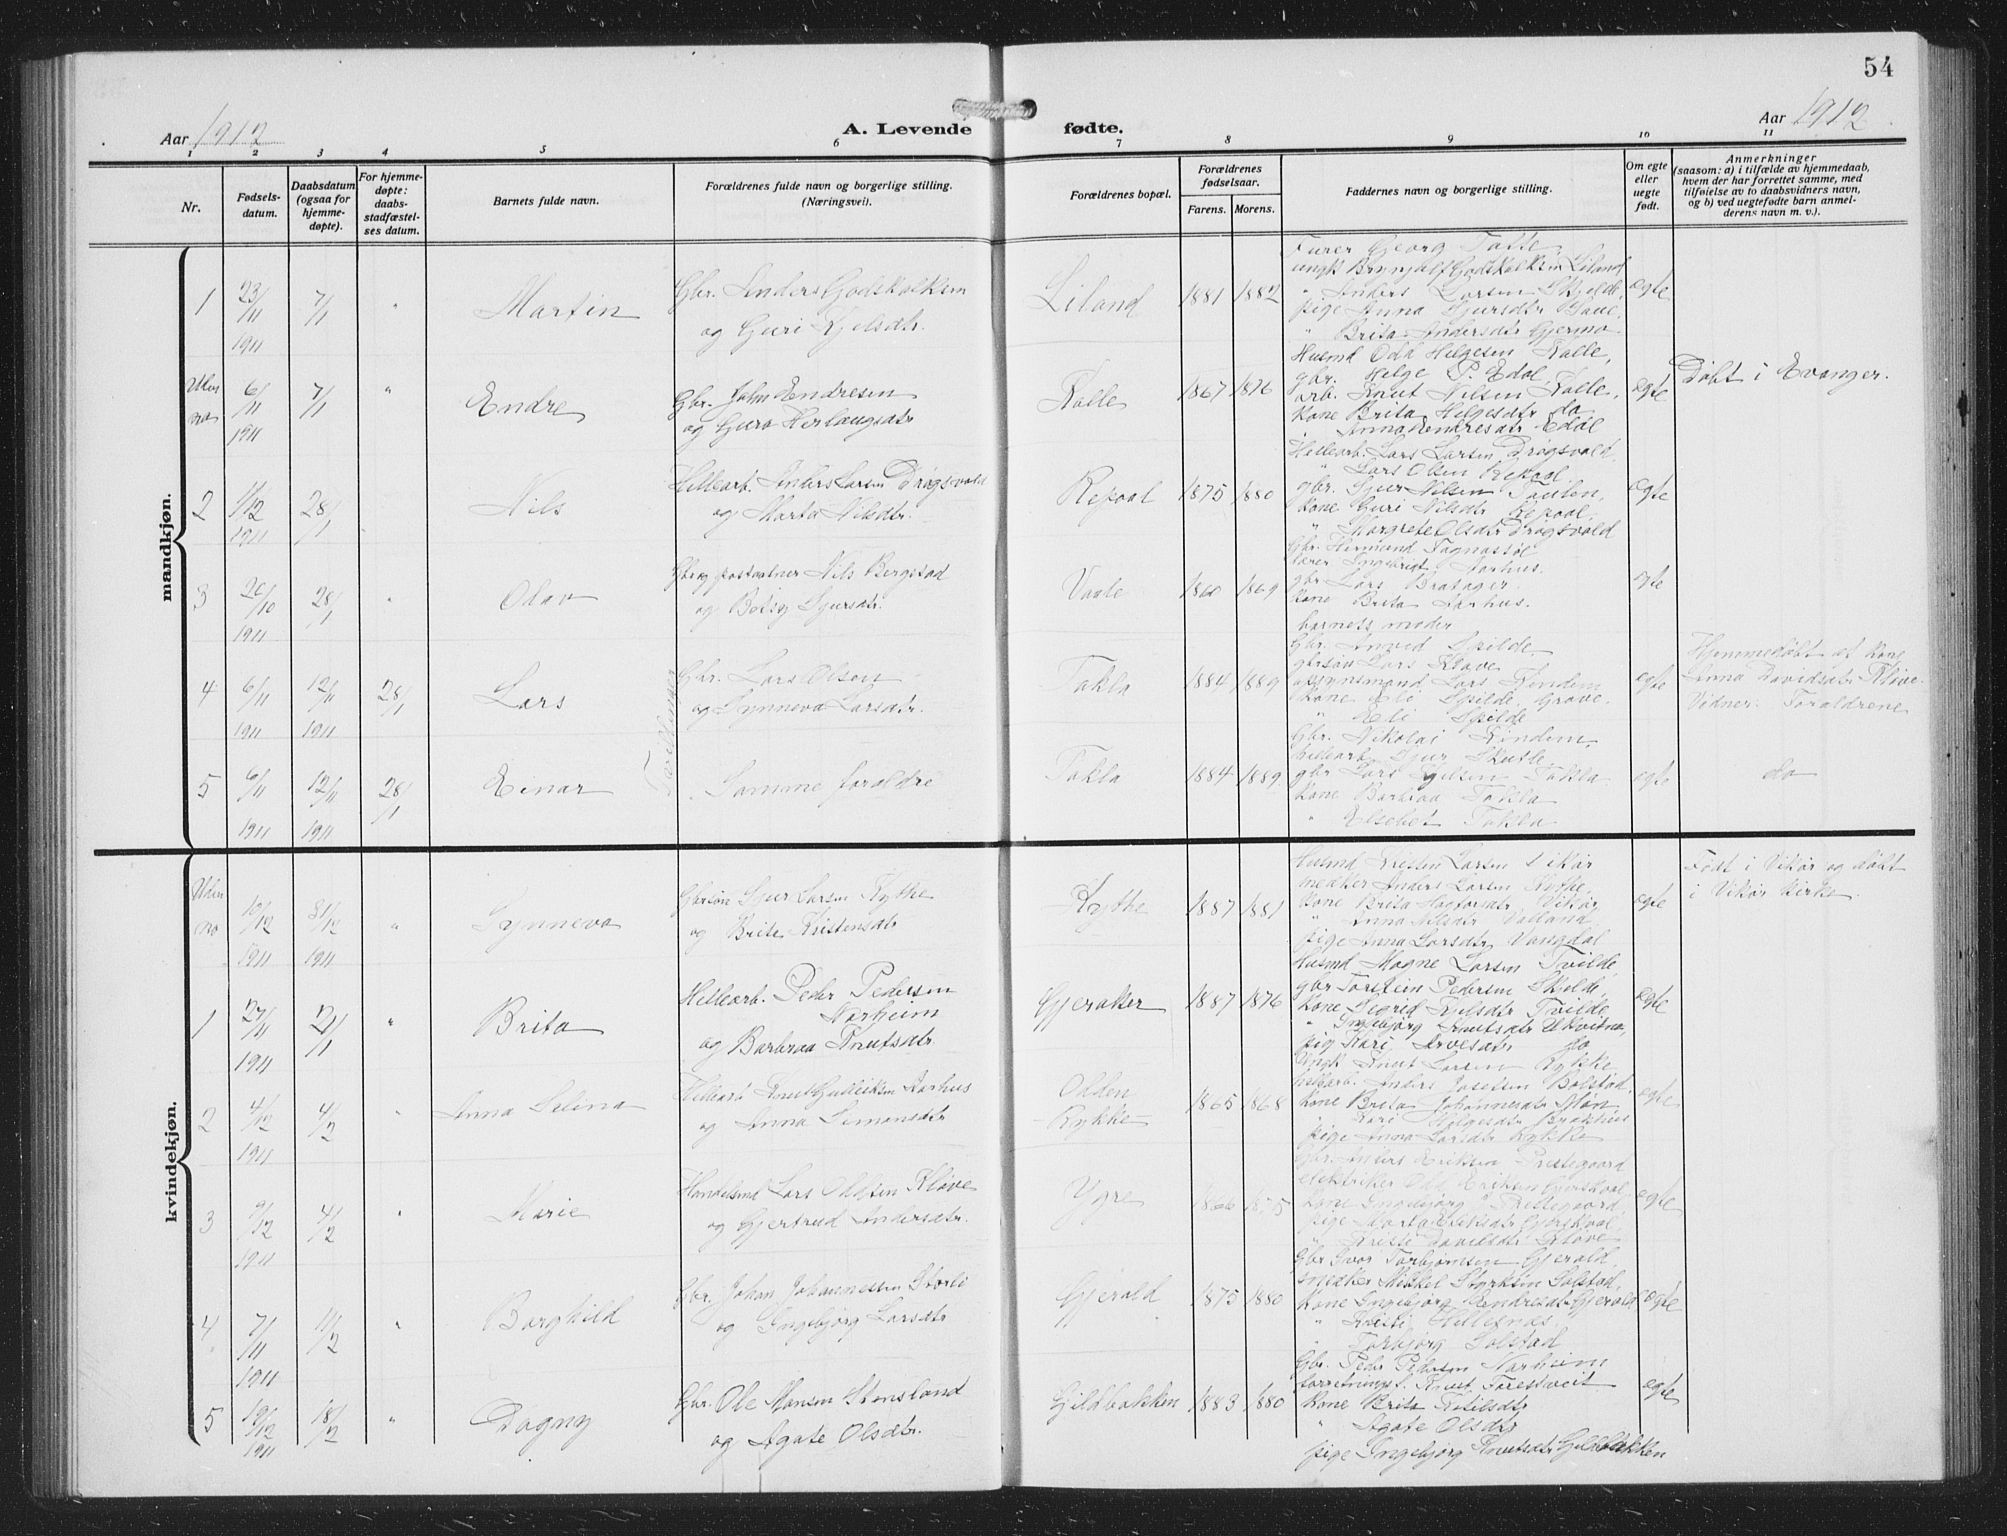 54
Aar 1912
A. Levende fødte.
Aar 1912
1 2 3 4 5 6 7 8 9 10 11
Nr.
Fødsels-
datum.
Daabsdatum
(ogsaa for
hjemme-
døpte).
For hjemme-
døpte:
daabs-
stadfæstel-
ses datum.
Barnets fulde navn.
Forældrenes fulde navn og borgerlige stilling.
(Næringsvei).
Forældrenes bopæl.
Forældrenes
fødselsaar.
Farens. Morens.
Faddernes navn og borgerlige stilling.
Om egte
eller
uegte
født.
Anmerkninger
(saasom: a) i tilfælde av hjemmedaab,
hvem der har forrettet samme, med
tilføielse av to daabsvidners navn,
og b) ved uegtefødte barn anmel-
derens navn m. v.).
mandkjøn.
1 23/11 1911 7/1 " Martin
Gbr. Anders Godskalksen
og Guri Kjelsdtr.
Liland 1881 1882
Furer Georg Tatte
ungk Brynjulf Godskalksen Liland
" Anders Larsen Skjelde,
pige Anna Sjursdtr Bøue,
" Brita Andersdtr Gjermo
egte
Uten no 6/11 1911 7/1 " Endre
Gbr. John Endresen
og Guro Herlaugsdtr
Kalle 1867 1876
Husmd Odd Helgesen Kalle,
gbr. Helge P. Edal,
arb. Knut Nilsen Kalle,
Kone Brita Helgesdtr do
" Anna Endresdtr Edal
egte
Døbt i Evanger.
2 1/12 1911 28/1 Nils
Hellearb. Anders Larsen Drøgsvold
og Marta Nilsdtr.
Repaal 1875 1880
Hellearb. Lars Larsen Drøgsvold,
" Lars Olsen Repaal
gbr. Sjur Nilsen
Kone Guri Nilsdtr Repaal,
" Margrete Olsdtr Drøgsvold
egte
3 26/10 1911 28/1 " Olav
Gbr og postaapner Nils Bergstad
og Betsy Sjursdtr.
1860 1869
Gbr. Hermund
lærer Ingebrigt Aarhus.
gbr Lars
Kone Brita Aarhus.
barnets moder
egte
4 6/11 1911 12/11 1911 28/1 Lars
Tvillinger
Gbr. Lars Olsen
og Synneva Larsdtr.
Takla 1884 1889
Gbr. Spilde
gbrsøn Lars Kløve
Lars Rindem
Kone Eli Spilde, Grove.
" Eli Spilde
egte
Hjemmedøbt af Kone
Anna Davidsdtr Kløve.
Vidner: Forældrene
5 6/11 1911 12/11 1911 28/1 Einar
Samme forældre
Takla 1884 1889
Gbr. Nikolai Rindem,
hellearb. Sjur Skutle,
gbr Lars Nilsen Takla
Kone Barbraa Takla
" Elsebet Takla
egte
do
kvindekjøn.
Uten no 10/12 1911 31/12 1911 " Synneva
Gbrsøn Sjur Larsen Kythe
og Brita Kristensdtr
Kythe 1887 1881
Husmd Kristen Larsen Vikør
snedker Anders Larsen Kythe,
Kone Brita Vikør
" Anna Nilsdtr
pige Anna Larsdtr Vangdal
egte
Født i Vikør og døbt
i Vikør kirke
1 27/11 1911 21/1 " Brita
Hellearb. Peder Pedersen
Norheim
og Barbraa Knutsdtr.
Gjeraker 1887 1876
Husmd Magne Larsen Tvilde,
gbr Torstein Pedersen Skjelde,
Kone Sigrid Nilsdtr Tvilde,
" Ingebjørg Knutsdtr
pige Kari do
egte
2 4/12 1911 4/2 " Anna Selina
Hellearb Knut Gulleiksen Aarhus
og Anna Simonsdtr
Olden
Rykke
1865 1868
Ungk Knut Larsen Rykke
hellearb. Anders Josefsen Bolstad,
Kone Brita Johannesdtr
" Kari Helgesdtr
pige Anna Larsdtr Rykke
egte
3 9/12 1911 4/2 " Marie
Handelsmd Lars Oddsen Kløve
og Gjertrud Andersdtr.
Ygre 1866 1875
Gbr. Anders Eriksen Prestegaard
elektriker Odd Eriksen
Kone Ingebjørg Prestegaard,
pige Marta Eriksdtr
" Kristi Davidsdtr Kløve
egte
4 7/11 1911 11/2 " Borghild
Gbr. Johan Johannessen Storli
og Ingebjørg Larsdtr
Gjerald 1875 1880
Gbr Ivar Torbjørnsen Gjerald,
snedker Mikkel Solstad,
Kone Ingebjørg Endresdtr Gjerald
" Kristi Hellesnes
" Torbjørg Solstad
egte
5 19/12 1911 18/2 " Dagny
Gbr. Ole Monsen Stensland
og Agate Olsdtr.
Gildbakken 1883 1880
Gbr. Peder Pedersen Norheim
forretningsf. Knut Foresveit
Kone Brita
" Agate Olsdtr
pige Ingebjørg Knutsdtr Gildbakken
egte